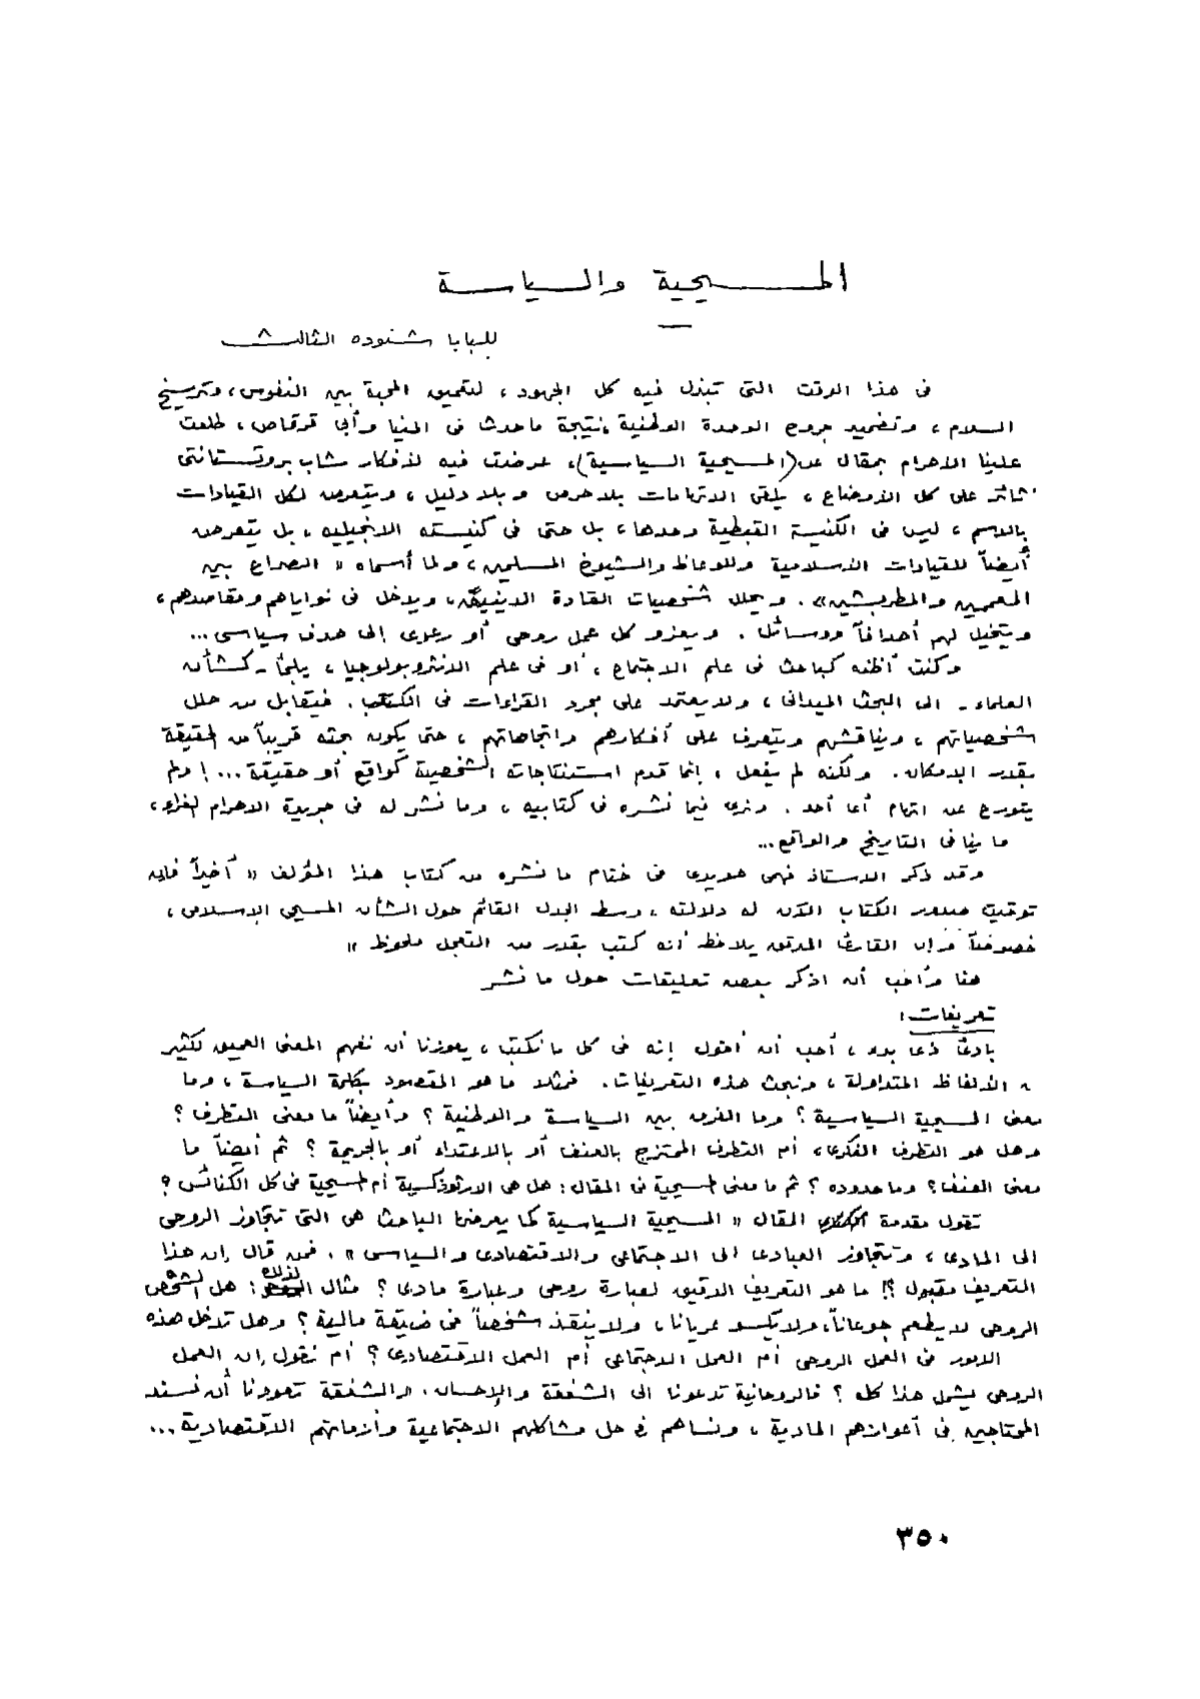 المسيحية والسياسة
للبابا شنوده الثالث
فى هذا الوقت التى تبذل فيه كل الجهود، لتعميق المحبة بين النفوس، وترسيخ
السلام، وتضميد جروح الوحدة الوطنية، نتيجة ما حدث فى المنيا وأبى قرقاص، طلعت
علينا الأهرام بمقال عن (المسيحية السياسية)، عرضت فيه لأفكار شاب بروتستانتى
ثائر على كل الأوضاع، يلقى الاتهامات بلا حرص وبلا دليل، ويتعرض لكل القيادات
بالاسم، ليس فى الكنيسة القبطية وحدها، بل حتى فى كنيسته الانجيليه، بل يتعرض
أيضاً للقيادات الاسلامية وللوعاظ والشيوخ المسلمين، ولما أسماه « الصراع بين
المعممين والمطربشين». ويحلل شخصيات القادة الدينيين، ويدخل فى نواياهم ومقاصدهم،
ويتخيل لهم أهدافاً ووسائل. ويعزو كل عمل روحى أو رعوى إلى هدف سياسى...
وكنت أظنه كباحث فى علم الاجتماع، أو فى علم الانثروبولوجيا، يلجأ - كشأن
العلماء - الى البحث الميدانى، ولا يعتمد على مجرد القراءات فى الكتب. فيتقابل مع من حلل
شخصياتهم، ويناقشهم ويتعرف على أفكارهم واتجاهاتهم، حتى يكون بحثه قريباً من الحقيقة
بقدر الامكان. ولكنه لم يفعل، إنما قدم استنتاجاته الشخصية كواقع أو حقيقة...! ولم
يتورع عن اتهام أى أحد. ونرى فيما نشره فى كتابيه، وما نشر له فى جريدة الاهرام الغراء،
ما ينافى التاريخ والواقع...
وقد ذكر الاستاذ فهمى هويدى فى ختام ما نشره من كتاب هذا المؤلف « أخيراً فإن
توقيت صدور الكتاب الآن له دلالته، وسط الجدل القائم حول الشأن المسيحى الإسلامى،
خصوصاً وإن القارئ المدقق يلاحظ أنه كتب بقدر من التعجل ملحوظ »
هنا وأحب أن اذكر بعض تعليقات حول ما نشر
تعريفات:
بادئ ذى بدء، أحب أن أقول إنه فى كل ما نكتب، يعوزنا أن نفهم المعنى العميق لكثير
من الألفاظ المتداولة، ونبحث هذه التعريفات. فمثلا ما هو المقصود بكلمة السياسة، وما
معنى المسيحية السياسية؟ وما الفرق بين السياسة والوطنية؟ وأيضاً ما معنى التطرف؟
وهل هو التطرف الفكرى، أم التطرف الممتزج بالعنف أو بالاعتداء أو بالجريمة؟ ثم أيضاً ما
معنى العنف؟ وما حدوده؟ ثم ما معنى المسيحية فى المقال: هل هى الارثوذكسية أم المسيحية فى كل الكنائس؟
تقول مقدمة المقال « المسيحية السياسية كما يعرضها الباحث هى التى تتجاوز الروحى
الى المادى، وتتجاوز العبادى الى الاجتماعى والاقتصادى والسياسى ». فمن قال إن هذا
التعريف مقبول؟! ما هو التعريف الدقيق لعبارة روحى وعبارة مادى؟ مثال لذلك: هل الشخص
الروحى لا يطعم جوعاناً، ولا يكسو عريانا، ولا ينقذ شخصاً فى ضيقة مالية؟ وهل تدخل هذه
الامور فى العمل الروحى أم العمل الاجتماعى أم العمل الاقتصادى؟ أم نقول إن العمل
الروحى يشمل هذا كله؟ فالروحانية تدعونا الى الشفقة والإحسان، والشفقة تعودنا أن نسند
المحتاجين فى أعوازهم المادية، ونساهم فى حل مشاكلهم الاجتماعية وأزماتهم الاقتصادية...
٣٥٠